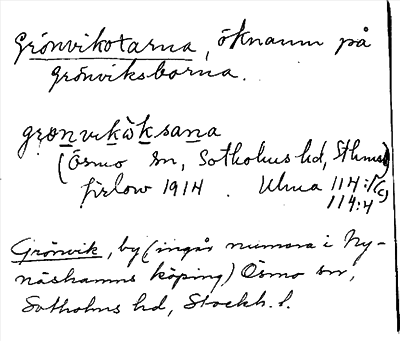 Grönvikotarna, öknamn på
Grönviksborna.
grønvikòksana
(Ösmo sn, Sotholms hd, Sthms)
Pirlow 1914. Ulma 114:1(c)
114:4
Grönvik, by (ingår numera i Ny-
näshamns köping) Ösmo sn,
Sotholms hd, Stockh. l.